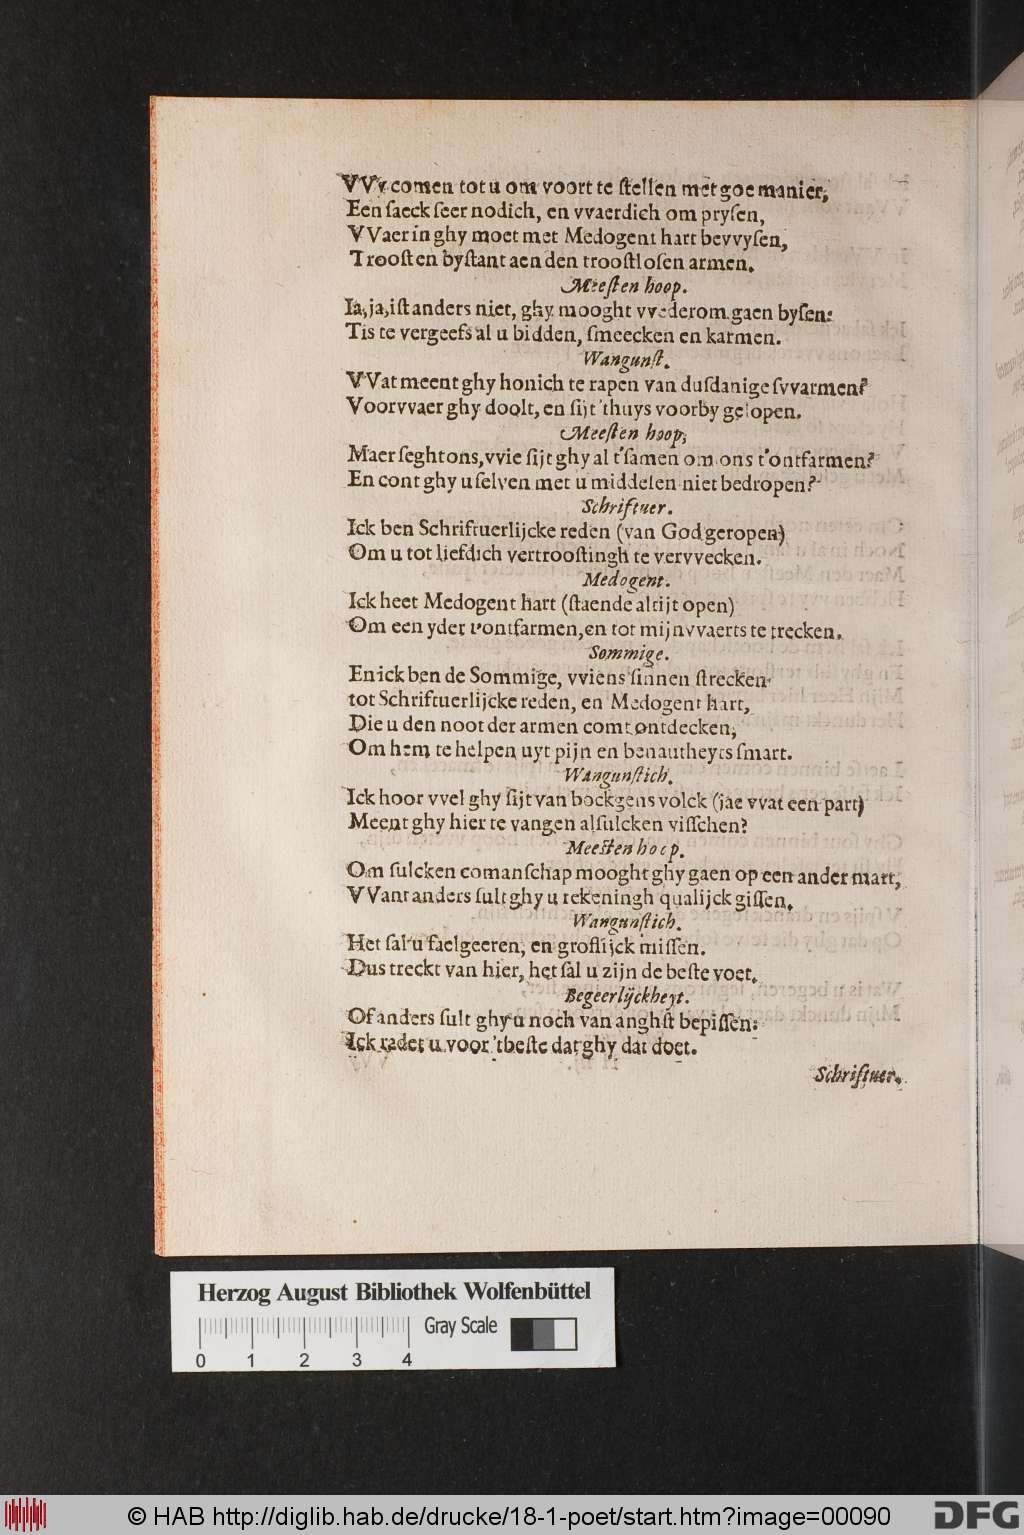 VVy comen tot u om voort te stellen met goe manier,
Een saeck seer nodich, en vvaerdich om prysen,
VVaer in ghy moet met Medogent hart bevvysen,
Troost en bystant aen den troostlosen armen.
Meesten hoop.
Ia, ja, ist anders niet, ghy mooght vvederom gaen bysen:
Tis te vergeefs al u bidden, smeecken en karmen.
Wangunst.
VVat meent ghy honich te rapen van dusdanige svvarmen?
Voorvvaer ghy doolt, en sijt 'thuys voorby gelopen.
Meesten hoop,
Maer seght ons, vvie sijt ghy al t'samen om ons t'ontfarmen?
En cont ghy u selven met u middelen niet bedropen?
Schriftuer.
Ick ben Schriftuerlijcke reden (van God geropen)
Om u tot liefdich vertroostingh te vervvecken.
Medogent.
Ick heet Medogent hart (staende altijt open)
Om een yder t'ontfarmen, en tot mijnvvaerts te trecken.
Sommige.
En ick ben de Sommige, vviens sinnen strecken
tot Schriftuerlijcke reden, en Medogent hart,
Die u den noot der armen comt ontdecken,
Om hem te helpen uyt pijn en benautheyts smart.
Wangunstich.
Ick hoor vvel ghy sijt van bockgens volck (jae vvat een part)
Meent ghy hier te vangen alsulcken visschen?
Meesten hoop.
Om sulcken comanschap mooght ghy gaen op een ander mart,
VVant anders sult ghy u rekeningh qualijck gissen.
Wangunstich.
Het sal u faelgeeren, en groflijck missen.
Dus treckt van hier, het sal u zijn de beste voet.
Begeerlijckheyt.
Of anders sult ghy u noch van anghst bepissen:
Ick radet u voor 'tbeste dat ghy dat doet.
Schriftuer.
Herzog August Bibliothek Wolfenbüttel
Gray Scale
0 1 2 3 4
© HAB http://diglib.hab.de/drucke/18-1-poet/start.htm?image=00090
DFG